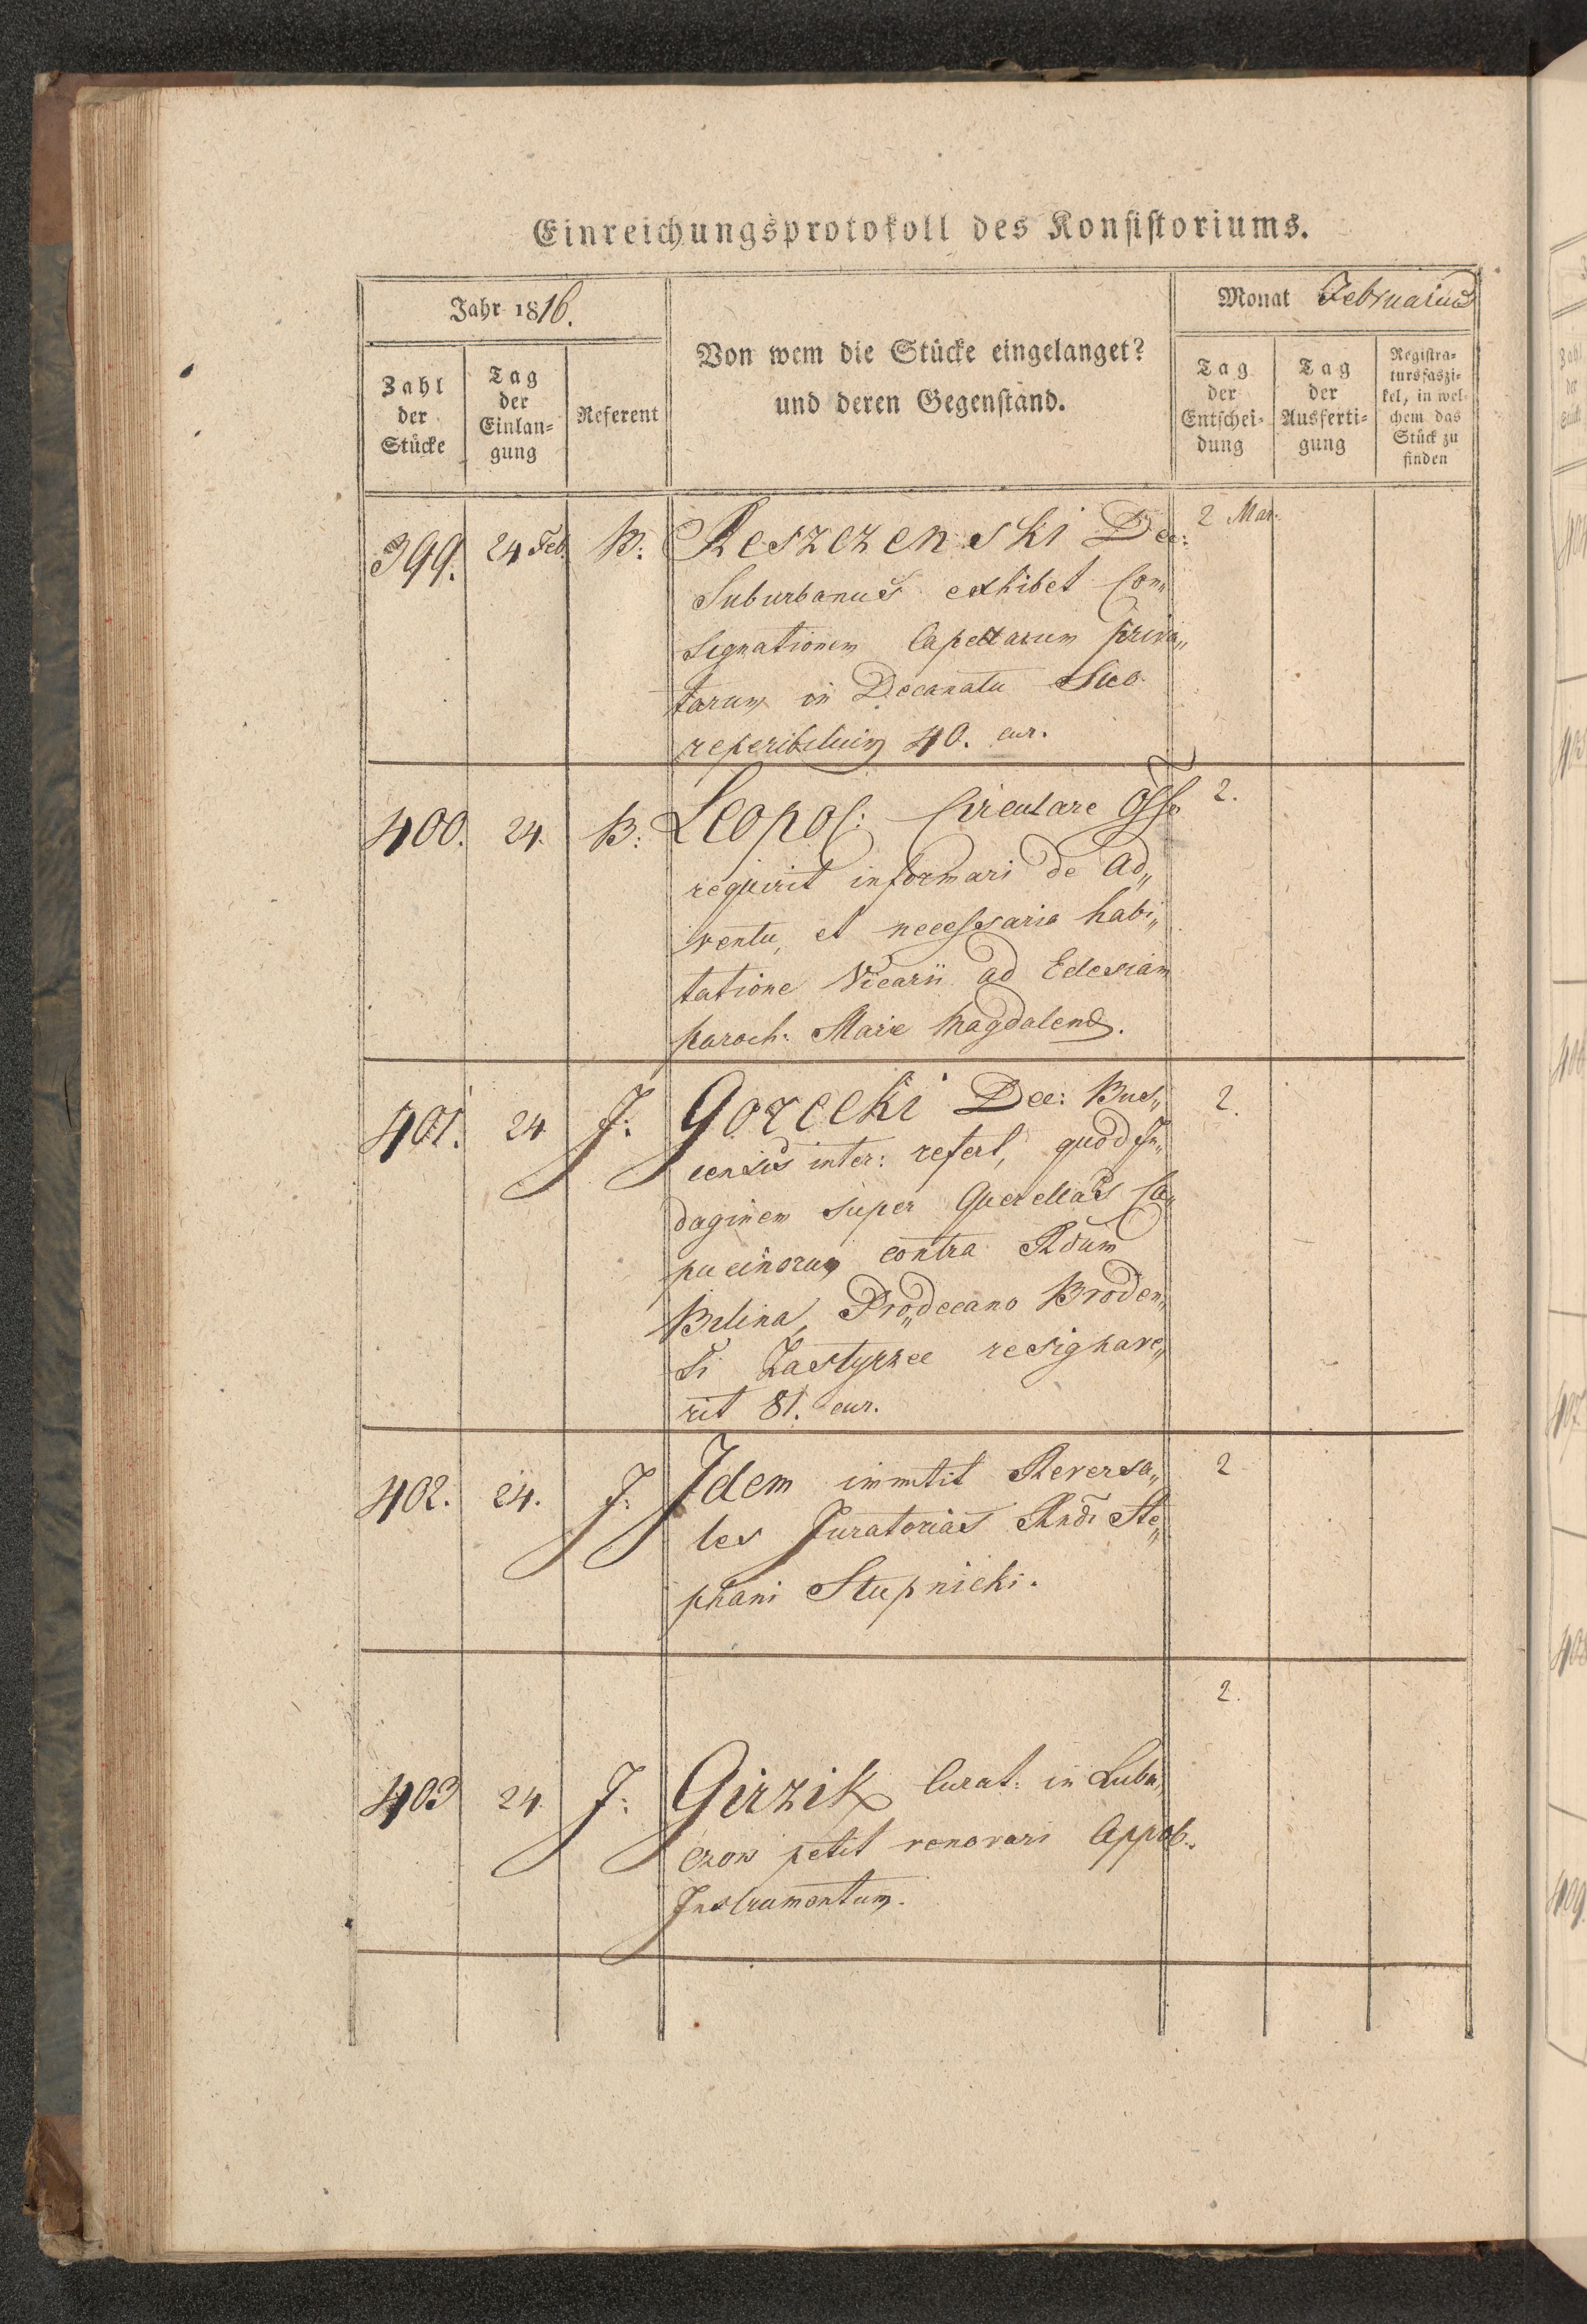 Einreichungsprotokoll des Konsistoriums.
Jahr 1816.
Monat Februarius
Zahl der Stücke
Tag der Einlan-gung
Referent
Von wem die Stücke eingelanget?
und deren Gegenstand.
Tag der Entschei-dung
Tag der Ausferti-gung
Registra-tursfaszi-kel, in wel-chem das Stück zu finden
399. 24 Feb. B: Reszczenski Dec: 2 Mar.
Suburbanus exhibet Con„
signationem Capellarum priva„
tarum in Decanatu Suo
reperibilium 40. cur.
400. 24. B: Leopol: Circulare Offo 2.
requirit informari de ad„
ventu, et necessaria habi„
tatione Vicarii ad Ecclesiam
paroch: Mariæ Magdalenæ.
401. 24 J: Gorecki Dec: Bus„ 2.
censis inter: refert, quod In„
daginem super Querellas Ca„
pucinorum contra Rdum
Bilina, Pro„decano Broden„
si Zastyrzec resignave„
rit 81. cur.
402. 24. J: Idem immitit Reversa„ 2
les Juratorias Rndi Ste„
phani Stupnicki.
403 24. J: Girzik Curat: in Luba„ 2.
czow petit renovari Appob.
Instrumentum.